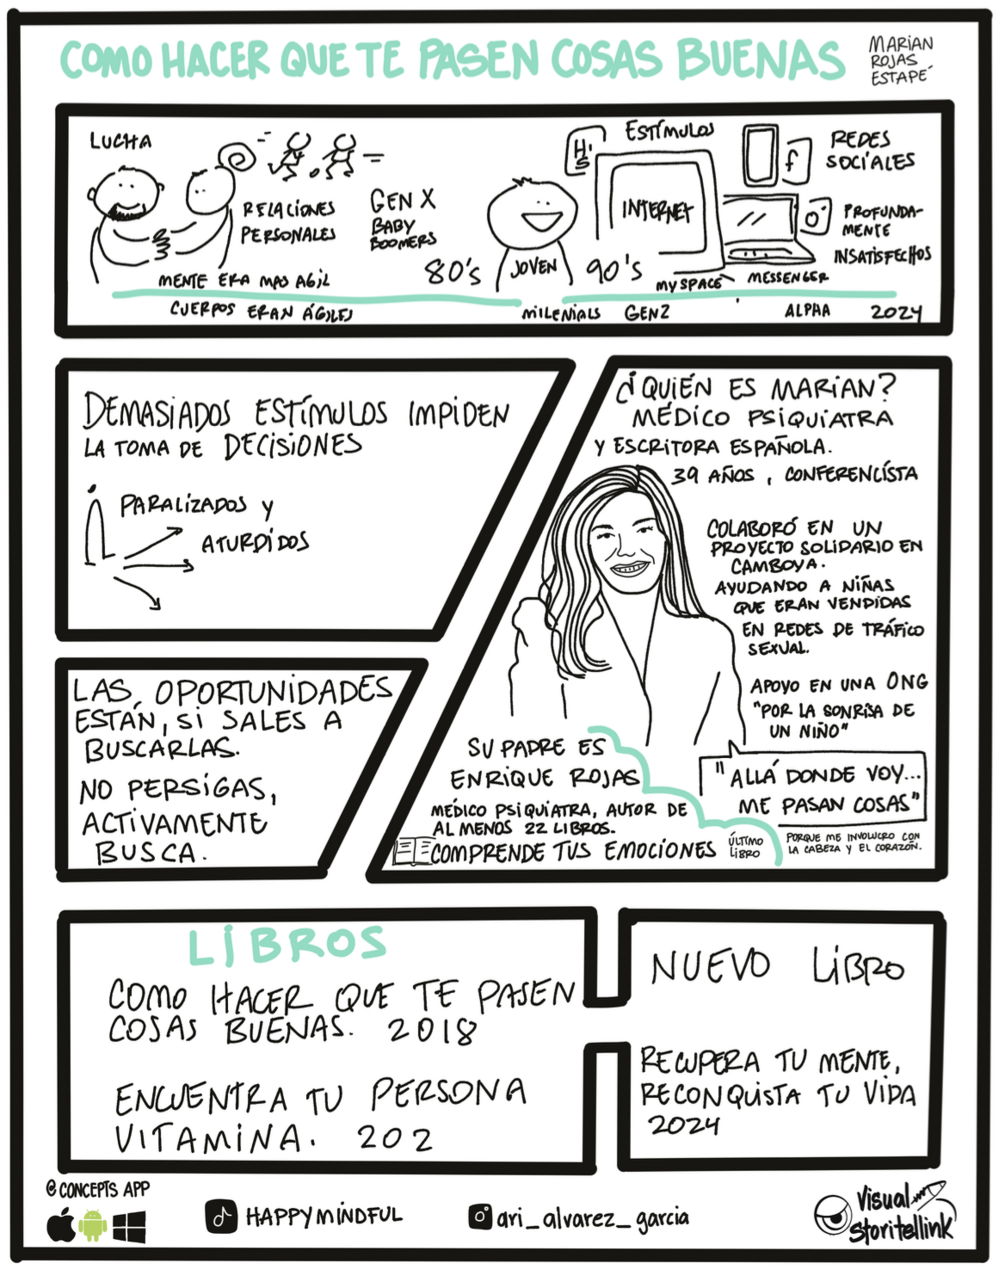 COMO HACER QUE TE PASEN COSAS BUENAS
MARIAN
ROJAS
ESTAPÉ
LUCHA
RELACIONES
PERSONALES
GEN X
BABY
BOOMERS
80'S
MENTE ERA MAS AGIL
CUERPOS ERAN ÁGILES
JOVEN
Hi5
ESTÍMULOS
INTERNET
90'S
MY SPACE
MESSENGER
f
REDES
SOCIALES
PROFUNDA-
MENTE
INSATISFECHOS
MILENIALS
GENZ
ALPHA
2024
DEMASIADOS ESTÍMULOS IMPIDEN
LA TOMA DE DECISIONES
PARALIZADOS Y
ATURDIDOS
LAS OPORTUNIDADES
ESTÁN, SI SALES A
BUSCARLAS.
NO PERSIGAS,
ACTIVAMENTE
BUSCA.
¿QUIÉN ES MARIAN?
MÉDICO PSIQUIATRA
Y ESCRITORA ESPAÑOLA.
39 AÑOS, CONFERENCÍSTA
COLABORÓ EN UN
PROYECTO SOLIDARIO EN
CAMBOYA.
AYUDANDO A NIÑAS
QUE ERAN VENDIDAS
EN REDES DE TRÁFICO
SEXUAL.
APOYO EN UNA ONG
"POR LA SONRISA DE
UN NIÑO"
"ALLÁ DONDE VOY...
ME PASAN COSAS"
PORQUE ME INVOLUCRO CON
LA CABEZA Y EL CORAZÓN.
SU PADRE ES
ENRIQUE ROJAS
MÉDICO PSIQUIATRA, AUTOR DE
AL MENOS 22 LIBROS.
COMPRENDE TUS EMOCIONES
ÚLTIMO
LIBRO
LIBROS
COMO HACER QUE TE PASEN
COSAS BUENAS. 2018
ENCUENTRA TU PERSONA
VITAMINA. 202
NUEVO LIBRO
RECUPERA TU MENTE,
RECONQUISTA TU VIDA
2024
@CONCEPTS APP
HAPPYMINDFUL
ari_alvarez_garcia
Visual
Storitellink